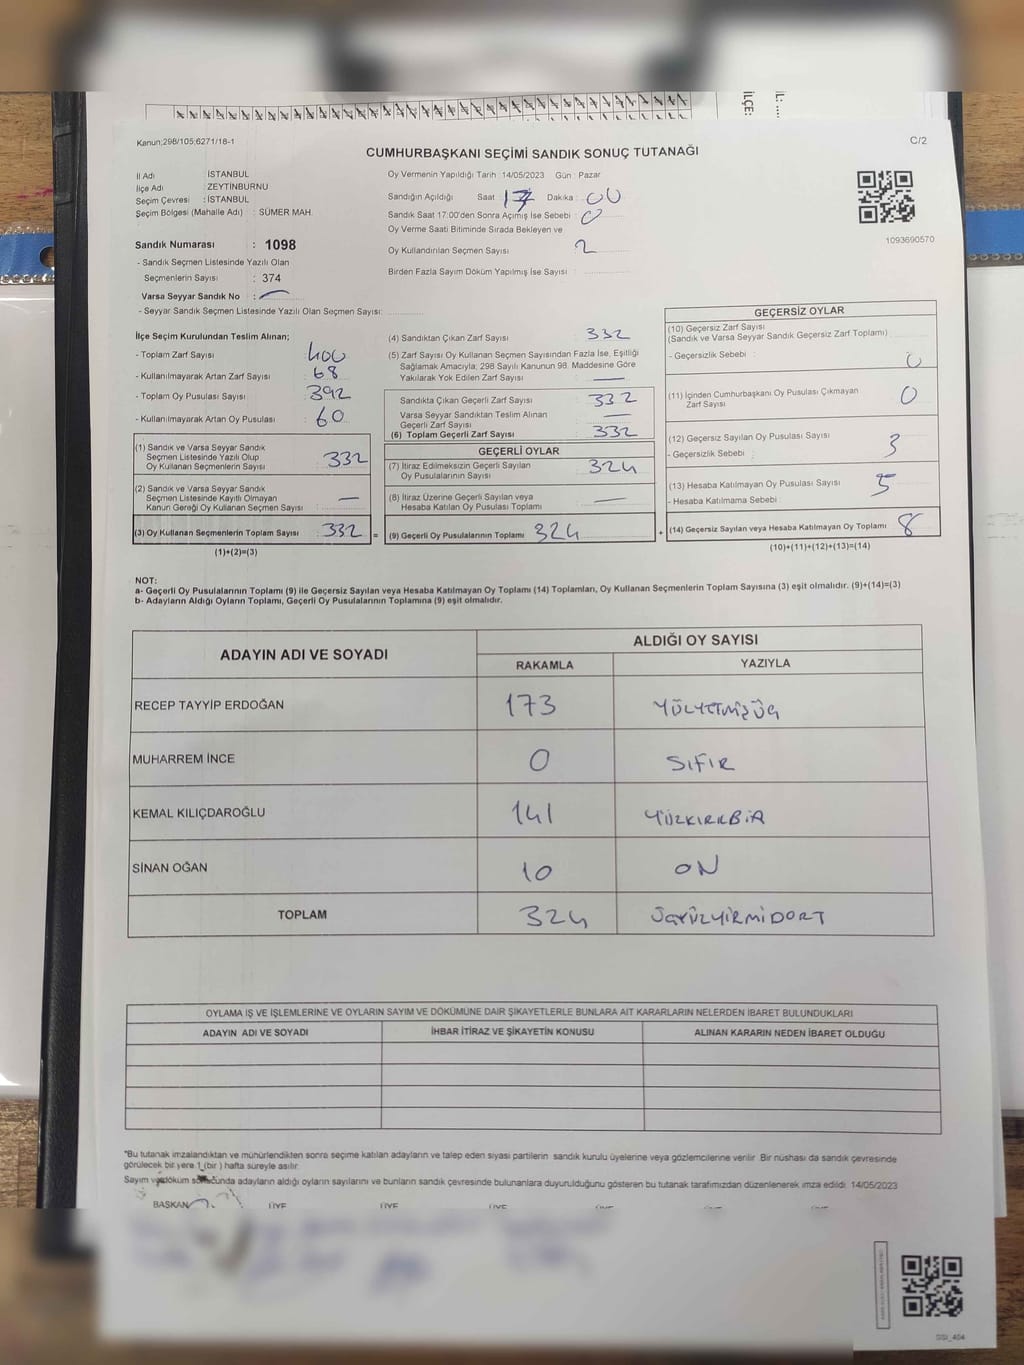 İLÇE:
İL: ....
Kanun;298/105;6271/18-1
C/2
CUMHURBAŞKANI SEÇİMİ SANDIK SONUÇ TUTANAĞI
İl Adı : İSTANBUL
İlçe Adı : ZEYTİNBURNU
Seçim Çevresi : İSTANBUL
Seçim Bölgesi (Mahalle Adı) : SÜMER MAH.
Sandık Numarası : 1098
- Sandık Seçmen Listesinde Yazılı Olan
Seçmenlerin Sayısı : 374
Varsa Seyyar Sandık No : —
- Seyyar Sandık Seçmen Listesinde Yazılı Olan Seçmen Sayısı:
Oy Vermenin Yapıldığı Tarih :14/05/2023 Gün : Pazar
Sandığın Açıldığı Saat 17 Dakika : 00
Sandık Saat 17:00'den Sonra Açımış İse Sebebi : 0
Oy Verme Saati Bitiminde Sırada Bekleyen ve
Oy Kullandırılan Seçmen Sayısı 2
Birden Fazla Sayım Döküm Yapılmış İse Sayısı :
1093690570
İlçe Seçim Kurulundan Teslim Alınan;
- Toplam Zarf Sayısı : 400
- Kullanılmayarak Artan Zarf Sayısı : 68
- Toplam Oy Pusulası Sayısı : 392
- Kullanılmayarak Artan Oy Pusulası : 60
(1) Sandık ve Varsa Seyyar Sandık
Seçmen Listesinde Yazılı Olup
Oy Kullanan Seçmenlerin Sayısı : 332
(2) Sandık ve Varsa Seyyar Sandık
Seçmen Listesinde Kayıtlı Olmayan
Kanun Gereği Oy Kullanan Seçmen Sayısı : —
(3) Oy Kullanan Seçmenlerin Toplam Sayısı : 332 =
(1)+(2)=(3)
(4) Sandıktan Çıkan Zarf Sayısı : 332
(5) Zarf Sayısı Oy Kullanan Seçmen Sayısından Fazla İse, Eşitliği
Sağlamak Amacıyla; 298 Sayılı Kanunun 98. Maddesine Göre
Yakılarak Yok Edilen Zarf Sayısı : —
Sandıkta Çıkan Geçerli Zarf Sayısı : 332
Varsa Seyyar Sandıktan Teslim Alınan
Geçerli Zarf Sayısı : —
(6) Toplam Geçerli Zarf Sayısı : 332
GEÇERLİ OYLAR
(7) İtiraz Edilmeksizin Geçerli Sayılan
Oy Pusulasının Sayısı : 324
(8) İtiraz Üzerine Geçerli Sayılan veya
Hesaba Katılan Oy Pusulası Toplamı : —
(9) Geçerli Oy Pusulalarının Toplamı : 324 +
GEÇERSİZ OYLAR
(10) Geçersiz Zarf Sayısı
(Sandık ve Varsa Seyyar Sandık Geçersiz Zarf Toplamı)
- Geçersizlik Sebebi : 0
(11) İçinden Cumhurbaşkanı Oy Pusulası Çıkmayan
Zarf Sayısı : 0
(12) Geçersiz Sayılan Oy Pusulası Sayısı : 3
- Geçersizlik Sebebi :
(13) Hesaba Katılmayan Oy Pusulası Sayısı : 5
- Hesaba Katılmama Sebebi :
(14) Geçersiz Sayılan veya Hesaba Katılmayan Oy Toplamı : 8
(10)+(11)+(12)+(13)=(14)
NOT:
a- Geçerli Oy Pusulalarının Toplamı (9) ile Geçersiz Sayılan veya Hesaba Katılmayan Oy Toplamı (14) Toplamları, Oy Kullanan Seçmenlerin Toplam Sayısına (3) eşit olmalıdır. (9)+(14)=(3)
b- Adayların Aldığı Oyların Toplamı, Geçerli Oy Pusulalarının Toplamına (9) eşit olmalıdır.
ADAYIN ADI VE SOYADI
ALDIĞI OY SAYISI
RAKAMLA YAZIYLA
RECEP TAYYİP ERDOĞAN 173 YÜZYETMİŞÜÇ
MUHARREM İNCE 0 SIFIR
KEMAL KILIÇDAROĞLU 141 YÜZKIRKBİR
SİNAN OĞAN 10 ON
TOPLAM 324 ÜÇYÜZYİRMİDÖRT
OYLAMA İŞ VE İŞLEMLERİNE VE OYLARIN SAYIM VE DÖKÜMÜNE DAİR ŞİKAYETLERLE BUNLARA AİT KARARLARIN NELERDEN İBARET BULUNDUKLARI
ADAYIN ADI VE SOYADI İHBAR İTİRAZ VE ŞİKAYETİN KONUSU ALINAN KARARIN NEDEN İBARET OLDUĞU
*Bu tutanak imzalandıktan ve mühürlendikten sonra seçime katılan adayların ve talep eden siyasi partilerin sandık kurulu üyelerine veya gözlemcilerine verilir. Bir nüshası da sandık çevresinde
görülecek bir yere 1 (bir ) hafta süreyle asılır.
Sayım ve döküm sonucunda adayların aldığı oyların sayılarını ve bunların sandık çevresinde bulunanlara duyurulduğunu gösteren bu tutanak tarafımızdan düzenlenerek imza edildi. 14/05/2023
BAŞKAN ÜYE ÜYE ÜYE ÜYE ÜYE